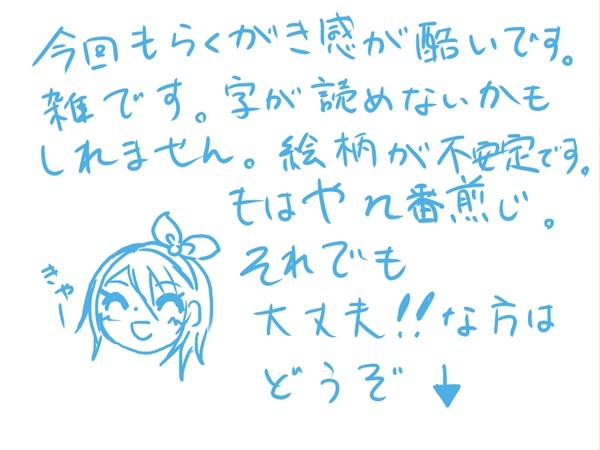 今回もらくがき感が酷いです。
雑です。字が読めないかも
しれません。絵柄が不安定です。
もはやn番煎じ。
それでも
大丈夫!!な方は
どうぞ↓
きゃー